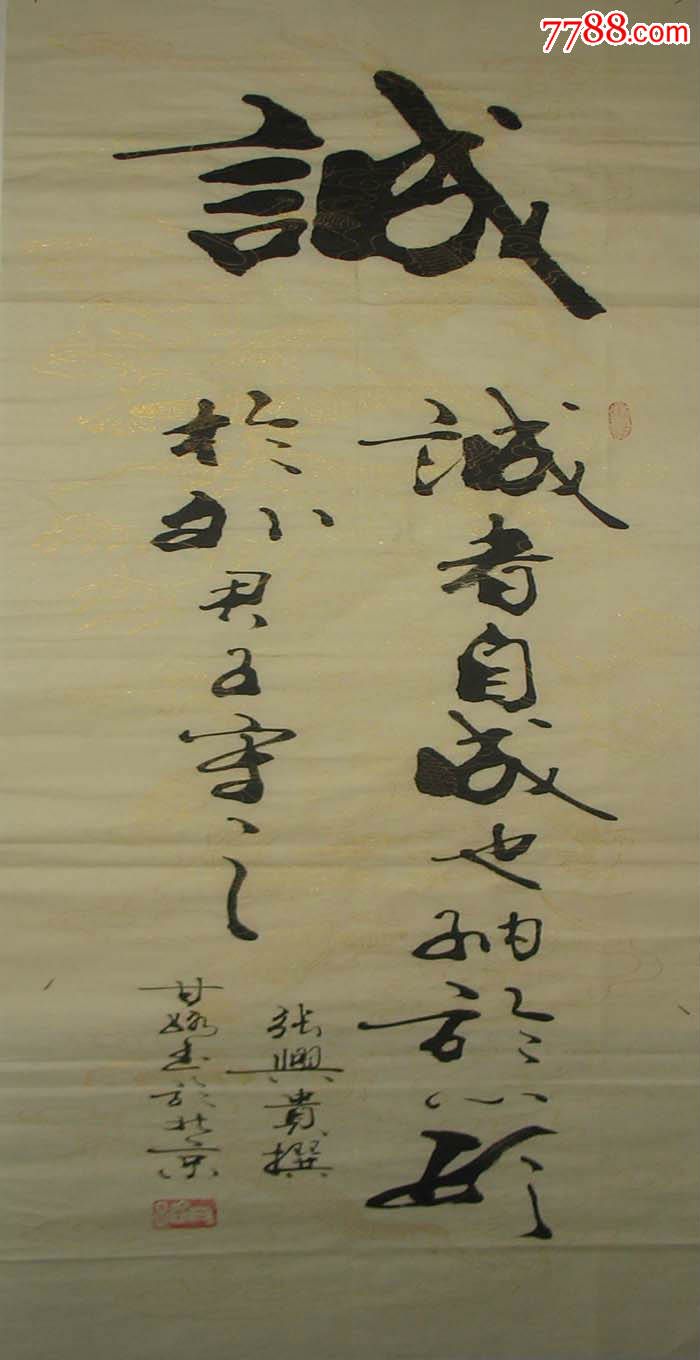 7788.com
誠
誠者自成也納於心形
於外君子守之
張興貴撰
甘婉書於北京